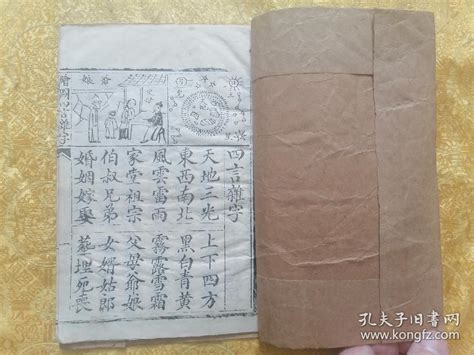 四言雜字
天地三光 上下四方
東西南北 黑白青黃
風雲雷雨 霧露雪霜
家堂祖宗 父母爺娘
伯叔兄弟 女婿姑郎
婚姻嫁娶 葬埋死喪
繪圖四言雜字
孔夫子旧书网
www.kongfz.com